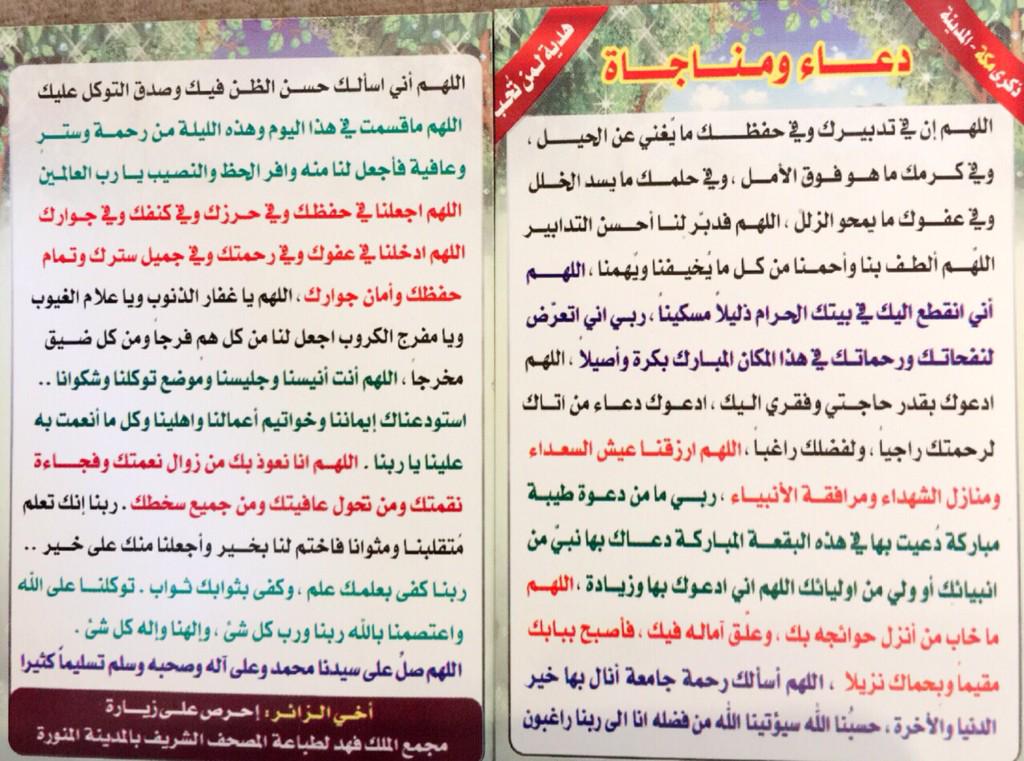 ذكرى مكة - المدينة
دعـــاء ومـنـاجـاة
هدية لمن تُحب
اللهـم إن في تدبيرك وفي حفظـك ما يُغني عن الحيـل ،
وفي كـرمك ما هـو فوق الأمـل ، وفي حلمـك ما يسد الخلل
وفي عفـوك ما يمحو الزلل ، اللهـم فدبّر لنـا أحسن التدابير
اللهُم ألطـف بنا وأحمنا من كل ما يُخيفـنا ويُهمنا ، اللهـم
أني انقطع اليك في بيتك الحرام ذليلاً مسكيناً ، ربـي اني اتعرّض
لنفحاتـك ورحماتـك في هذا المكان المبـارك بكرة وأصيلاً ، اللهم
ادعوك بقدر حاجتي وفقري اليـك ، ادعـوك دعـاء من اتاك
لرحمتك راجياً ، ولفضلك راغباً ، اللهـم ارزقنـا عيش السعـداء
ومنازل الشهداء ومرافقـة الأنبيـاء ، ربـي ما من دعـوة طيبة
مباركة دُعيت بها في هذه البقعـة المباركـة دعـاك بها نبيّ من
انبيائك أو ولي من اوليائك اللهم اني ادعوك بها وزيادة ، اللهـم
ما خاب من أنزل حوائجه بك ، وعلّق آمالـه فيك ، فأصبح ببابك
مقيماً وبحماك نزيلا ، اللهم أسألك رحمة جامعة أنال بها خير
الدنيا والأخرة ، حسبُنا الله سيؤتينا الله من فضله انا الى ربنا راغبون
اللهـم أني اسألـك حسـن الظـن فيـك وصدق التوكل عليك
اللهم ماقسمت في هذا اليوم وهذه الليلة من رحمـة وستـر
وعافية فأجعل لنا منه وافر الحظ والنصيب يـا رب العالمـين
اللهم اجعلنا في حفظك وفي حـرزك وفي كنفك وفي جـوارك
اللهم ادخلنا في عفوك وفي رحمتك وفي جميل سترك وتمام
حفظك وأمان جوارك ، اللهم يا غفار الذنوب ويا علام الغيوب
ويا مفرج الكروب اجعل لنا من كل هم فرجاً ومن كل ضيـق
مخرجاً ، اللهم أنت أنيسنا وجليسنا وموضع توكلنا وشكوانا ..
استودعناك إيماننا وخواتيم أعمالنا واهلينا وكل ما أنعمت به
علينا يا ربنا . اللهـم انا نعوذ بك من زوال نعمتك وفجـاءة
نقمتك ومن تحول عافيتك ومن جميع سخطك . ربنا إنك تعلم
مُتقلبنـا ومثوانا فاختم لنا بخيـر وأجعلنا منك على خـير ..
ربنـا كفى بعلمـك علم ، وكفى بثوابـك ثـواب . توكلنـا على الله
واعتصمنـا بالله ربنا ورب كل شئ ، وإلهنا وإله كل شئ .
اللهم صلُ على سيدنا محمد وعلى آله وصحبه وسلم تسليماً كثيرا
أخي الـزائـر : إحـرص على زيـارة
مجمع الملك فهد لطباعة المصحف الشريف بالمدينة المنورة